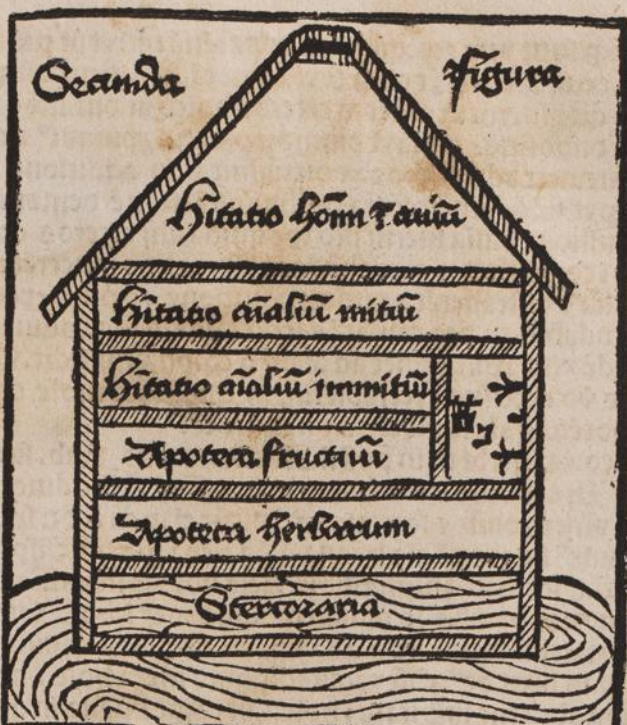 Secunda figura
Hītatio hōīm ⁊ auiū
Hītatio aīaliū mitiū
Hītatio aīaliū immitiū
Apoteca fructuū
Apoteca herbarum
Stercoraria